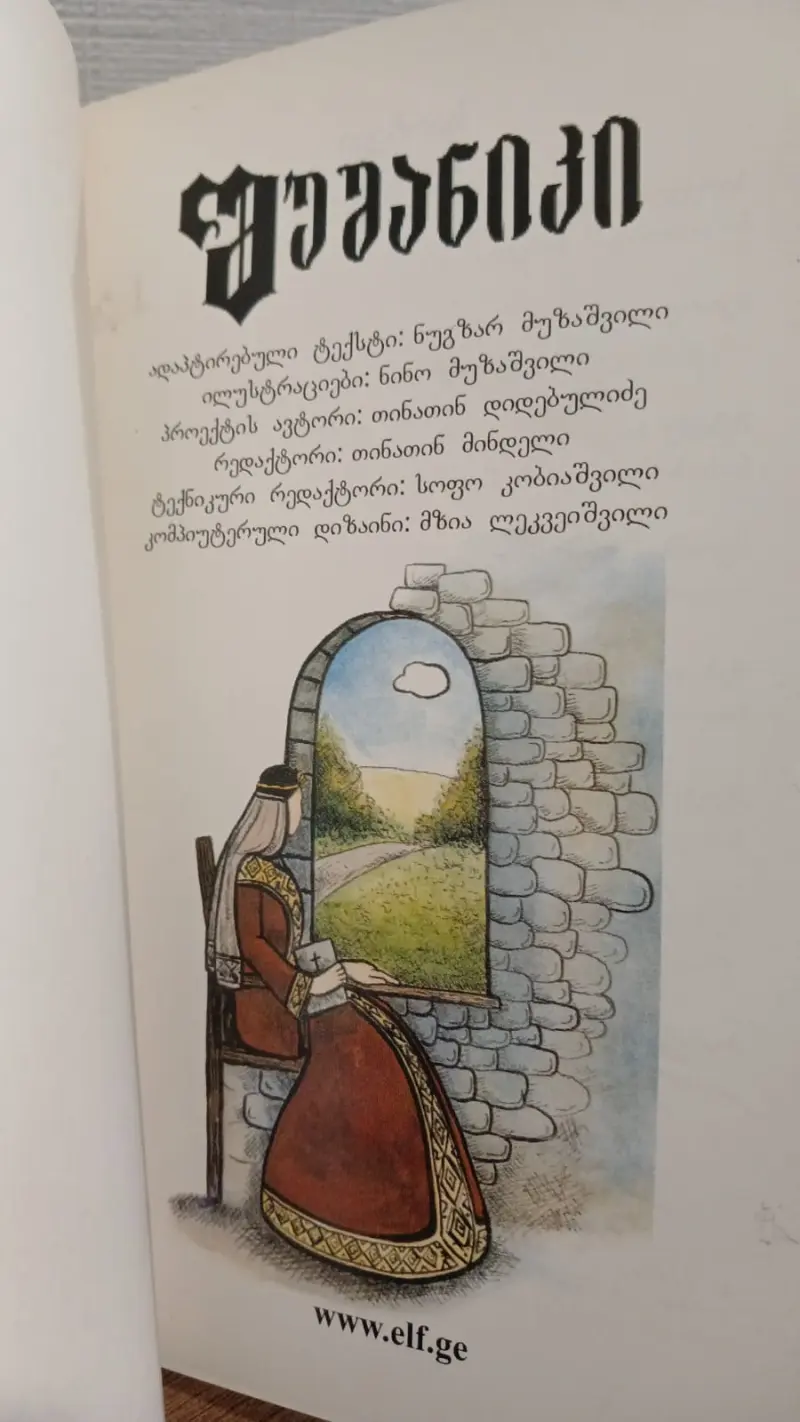 შუშანიკი
ადაპტირებული ტექსტი: ნუგზარ მუზაშვილი
ილუსტრაციები: ნინო მუზაშვილი
პროექტის ავტორი: თინათინ დიდებულიძე
რედაქტორი: თინათინ მინდელი
ტექნიკური რედაქტორი: სოფო კობიაშვილი
კომპიუტერული დიზაინი: მზია ლეკვეიშვილი
www.elf.ge